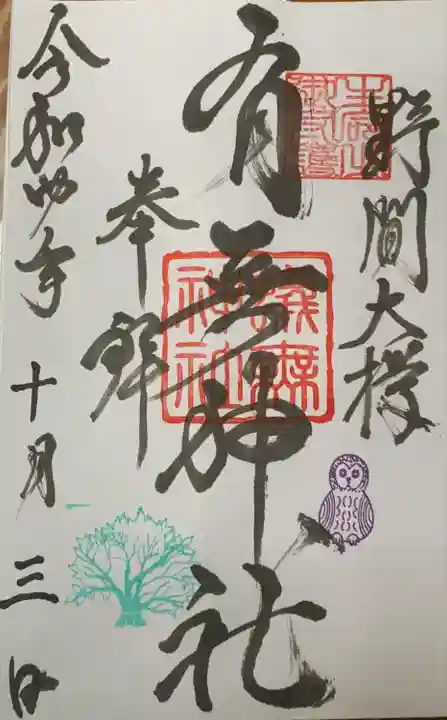 野間大欅
有無神社
奉拝
令和四年十月三日
蟻無
神社